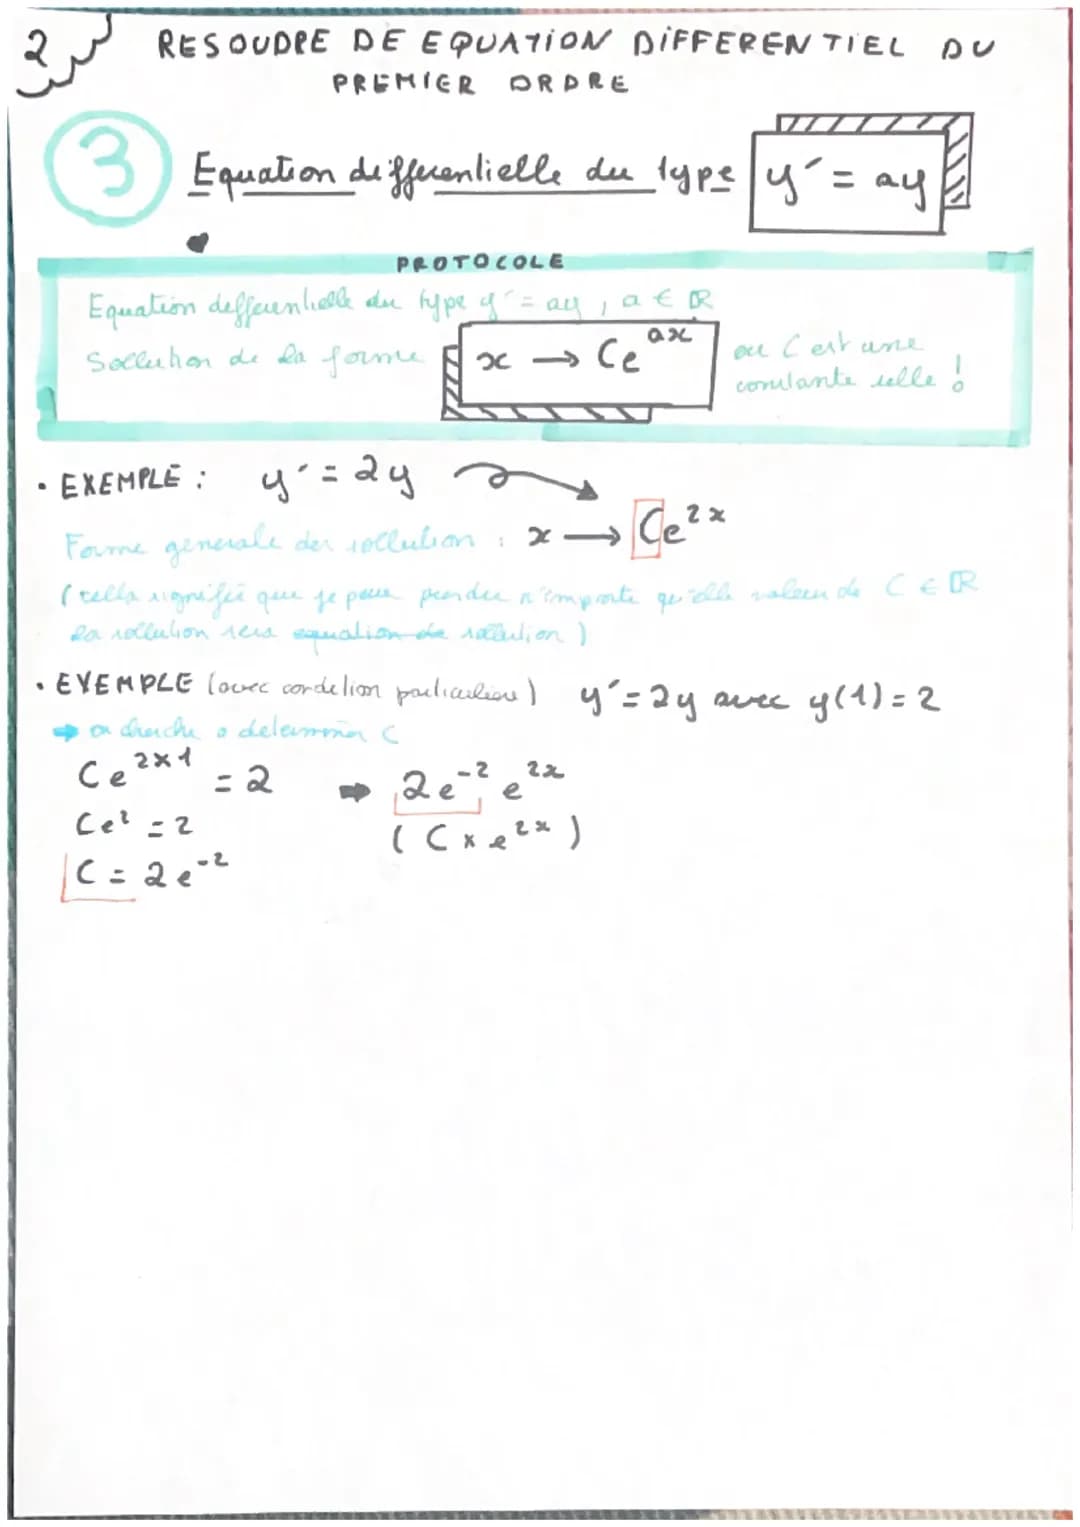 2
RESOUDRE DE EQUATION DIFFERENTIEL DU
PREMIER ORDRE
3 Equation differentielle du type y' = ay
PROTOCOLE
Equation defferentielle du type y' = ay, a ∈ ℝ
Sollution de la forme x → Ce^{ax} ou C est une
constante réelle !
• EXEMPLE : y' = 2y
Forme generale des sollution : x → Ce^{2x}
(cella signifie que je peux prendre n'importe quelle valeur de C ∈ ℝ
la sollution sera equation de sollution)
• EXEMPLE (avec condetion particuliere) y' = 2y avec y(1) = 2
➡ on cherche a determiner C
Ce^{2×1} = 2 ➡ 2e^{-2} e^{2x}
Ce² = 2 (C × e^{2x})
C = 2e^{-2}